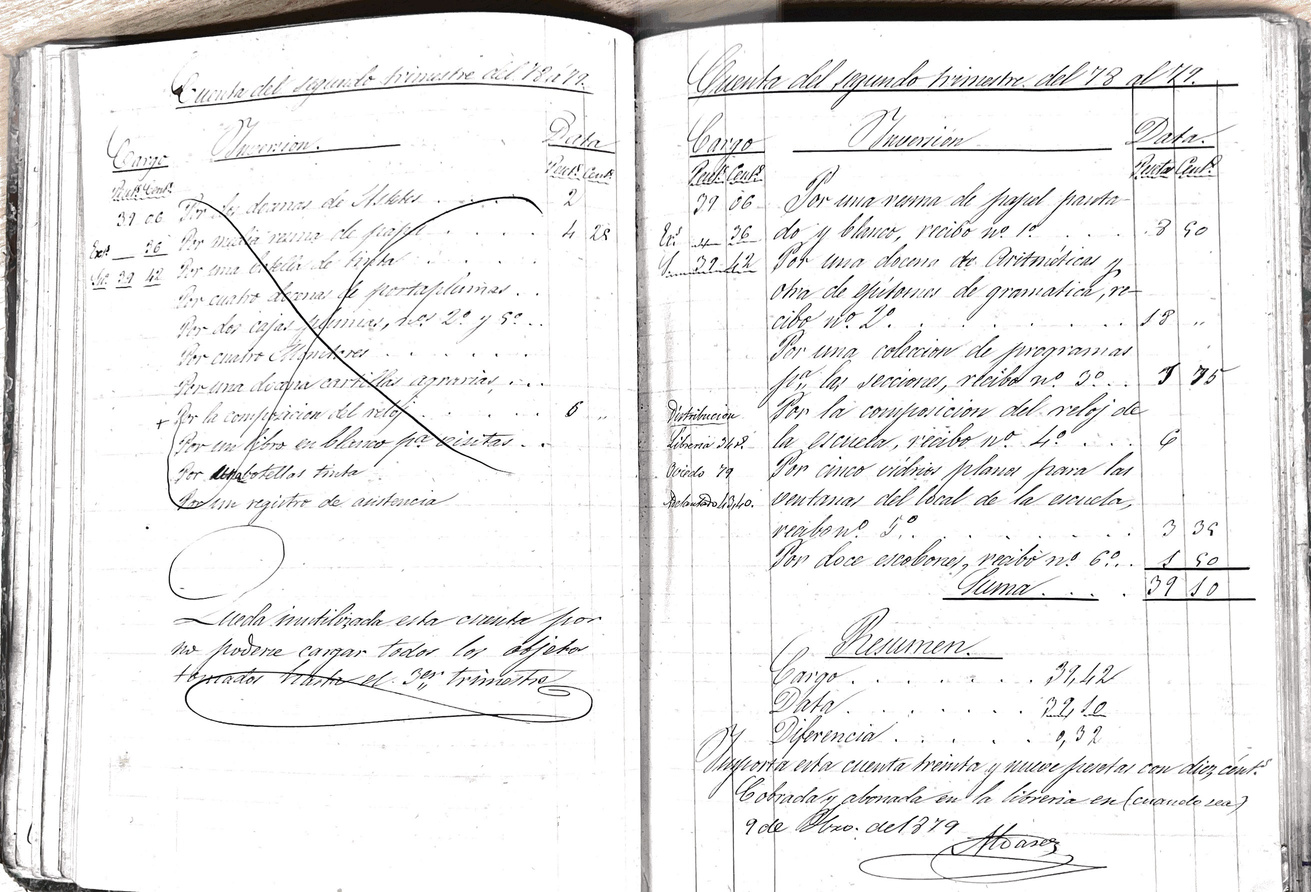 Cuenta del segundo trimestre del 78 á 79.
Cargo Inversion. Data
Pest.s Cent.s Pest.s Cent.s
39 06 Por dos docenas de . . . . 2
Ex.s 36 Por media resma de papel . . . . 4 28
S. 39 42 Por una botella de tinta . . . .
Por cuatro docenas de portaplumas . .
Por dos cajas plumas, n.os 2.º y 5.º . .
Por cuatro Monitores . . . . .
Por una docena cartillas agrarias, . . .
+ Por la composicion del reloj . . . . . 6 „
Por un libro en blanco p.a visitas . . .
Por botellas tinta
Por un registro de asistencia
Queda inutilizada esta cuenta por
no poderse cargar todos los objetos
tomados hasta el 3.er trimestre
Cuenta del segundo trimestre del 78 al 79.
Cargo Inversion Data.
Pest.s Cent.s Pesetas Cent.s
39 06 Por una resma de papel pauta-
Ex.s 36 do y blanco, recibo nº 1º . . . . 8 50
S. 39 42 Por una docena de Aritméticas y
otra de epitomes de gramatica, re-
cibo nº 2º . . . . . . . . 18 „
Por una coleccion de programas
p.a las secciones, recibo nº 3º . . 1 75
Distribucion Por la composicion del reloj de
Libreria la escuela, recibo nº 4º . . . 6
Oviedo 79 Por cinco vidrios planos para las
ventanas del local de la escuela,
recibo nº 5º . . . . . . . 3 35
Por doce escobones, recibo nº 6º . . 1 50
Suma . . . . 39 10
Resumen.
Cargo . . . . . . . 39,42
Data . . . . . . . 39,10
Diferencia . . . . . 0,32
Importa esta cuenta treinta y nueve pesetas con diez cent.s
Cobrada y abonada en la libreria en (cuando sea)
9 de Fbro. del 1879
Alvarez